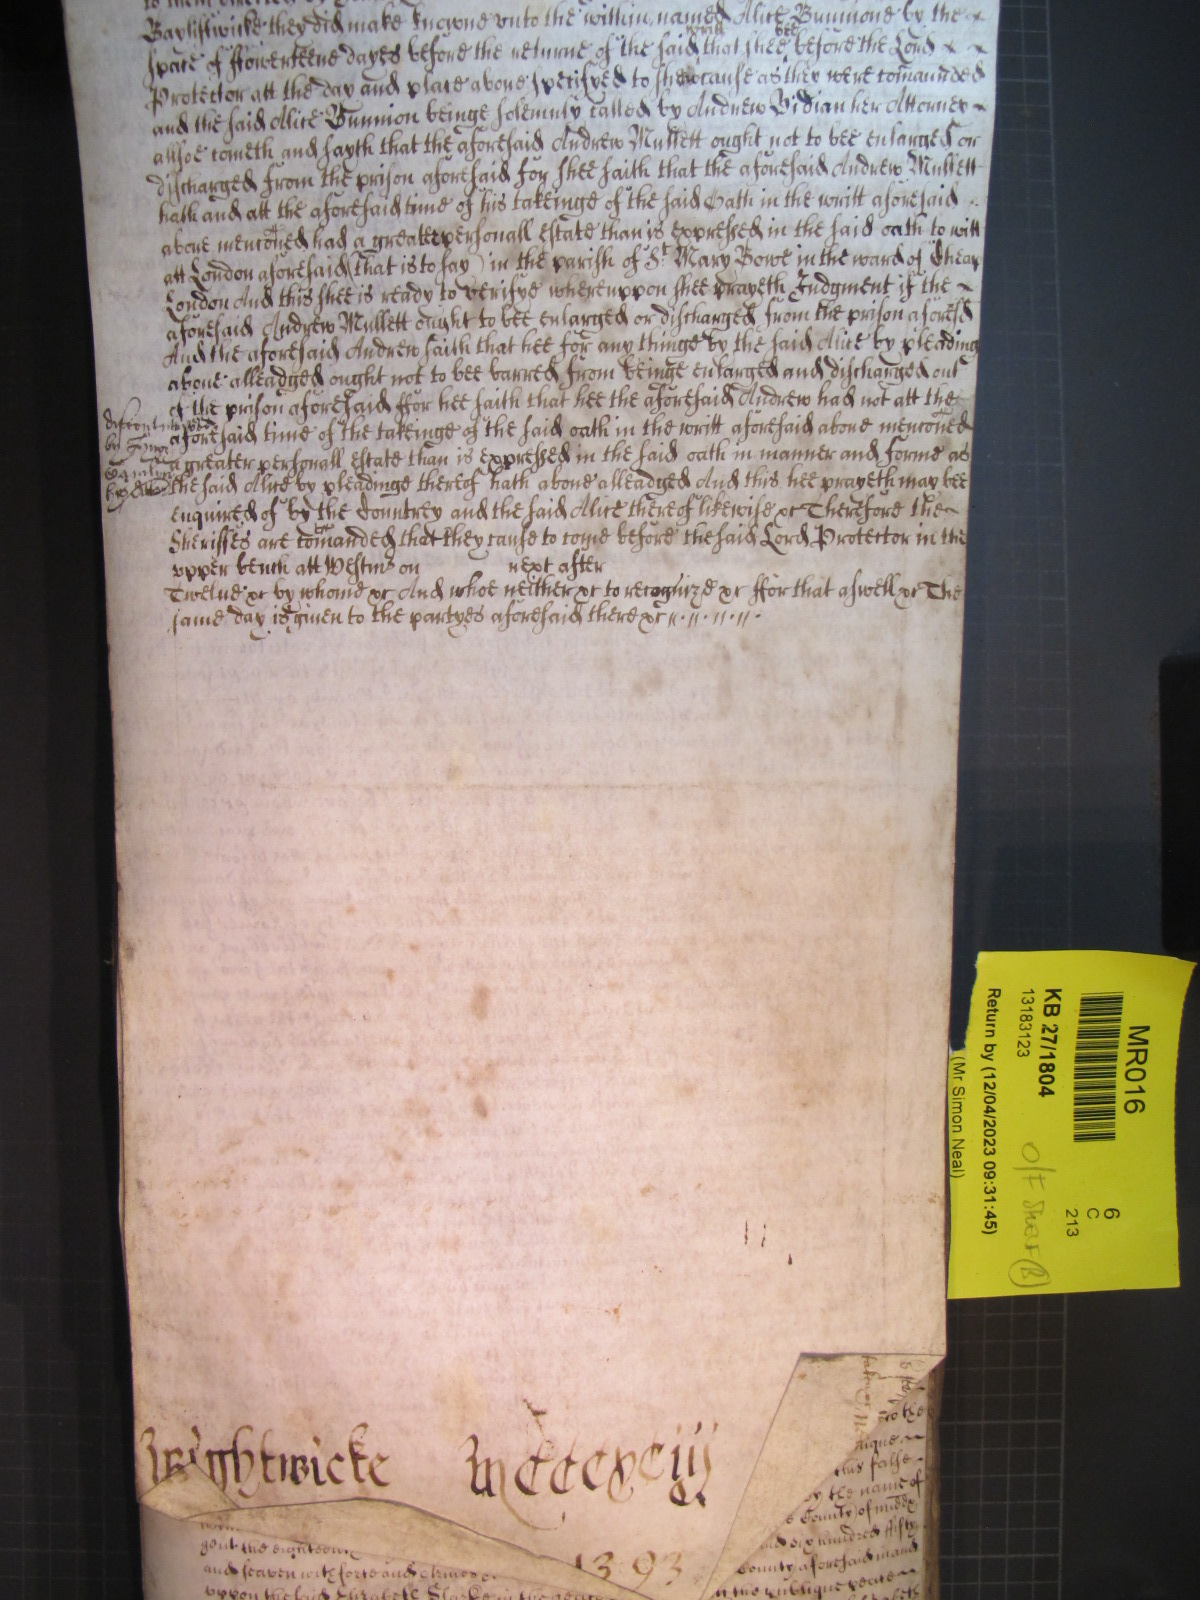 Bayliffwicke they did make knowne vnto the within named Alice Bunnione by the
space of ffowerteene dayes before the returne of the said writt that shee bee before the Lord
Protector att the day and place above specifyed to shew cause as they were comaunded
and the said Alice Bunnion beinge solemnly called by Andrew Vidian her Attorney
allsoe cometh and sayth that the aforesaid Andrew Mullett ought not to bee enlarged or
discharged from the prison aforesaid for shee saith that the aforesaid Andrew Mullett
hath and att the aforesaid time of his takeinge of the said Oath in the writt aforesaid
above menconed had a greater personall estate than is expressed in the said oath to witt
att London aforesaid (that is to say) in the parish of St Mary Bowe in the ward of Cheap
London And this shee is ready to verifye whereuppon shee prayeth Judgment if the
aforesaid Andrew Mullett ought to bee enlarged or discharged from the prison aforesd
And the aforesaid Andrew saith that hee for any thinge by the said Alice by pleading
above alleadged ought not to bee barred from beinge enlarged and discharged out
of the prison aforesaid ffor hee saith that hee the aforesaid Andrew had not att the
aforesaid time of the takeinge of the said oath in the writt aforesaid above menconed
a greater personall estate than is expressed in the said oath in manner and forme as
the said Alice by pleadinge thereof hath above alleadged And this hee prayeth may bee
enquired of by the Countrey and the said Alice thereof likewise xc Therefore the
Sheriffes are comanded that they cause to come before the said Lord Protector in the
upper bench att Westmr on next after
Twelve xc by whome xc And whoe neither xc to recognize xc ffor that aswell xc The
same day is given to the partyes aforesaid there xc
Wightwicke Mccclxciij
1393
MR016
KB 27/1804
13183123
Return by (12/04/2023 09:31:45)
(Mr Simon Neal)
6
C
213
the
his false
by the name of
County of midds
and six hundred fifty
County aforesaid in and
the eighteenth
and seaven with force and armes
uppon the said Elizabeth